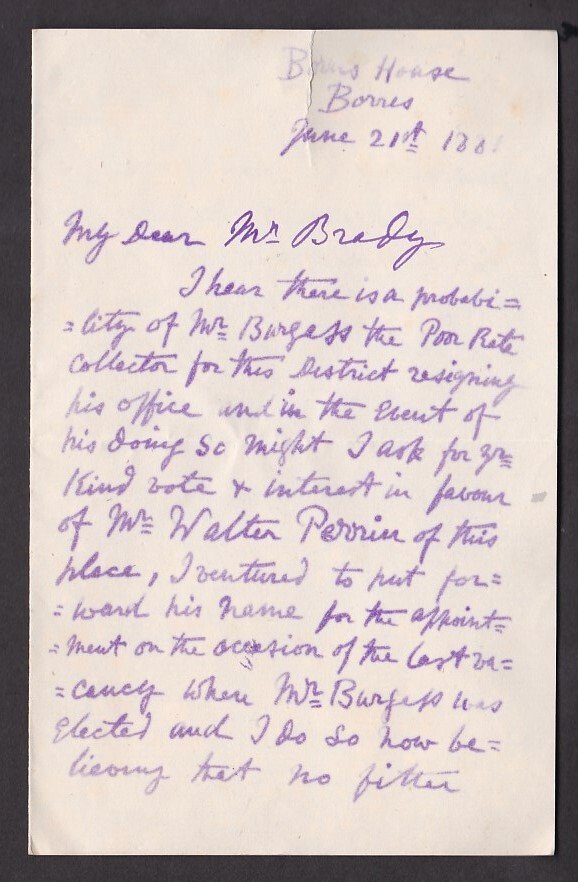 Borris House
Borres
June 21st 188
My Dear Mr Brady
I hear there is a probabi=
=lity of Mr Burgess the Poor Rate
collector for this District resigning
his office and in the Event of
his Doing So might I ask for yr
Kind vote & interest in favour
of Mr Walter Perrin of this
place, I ventured to put for=
=ward his name for the appoint=
=ment on the occasion of the last va=
=cancy where Mr Burgess was
Elected and I Do So now be=
lieving that no fitter